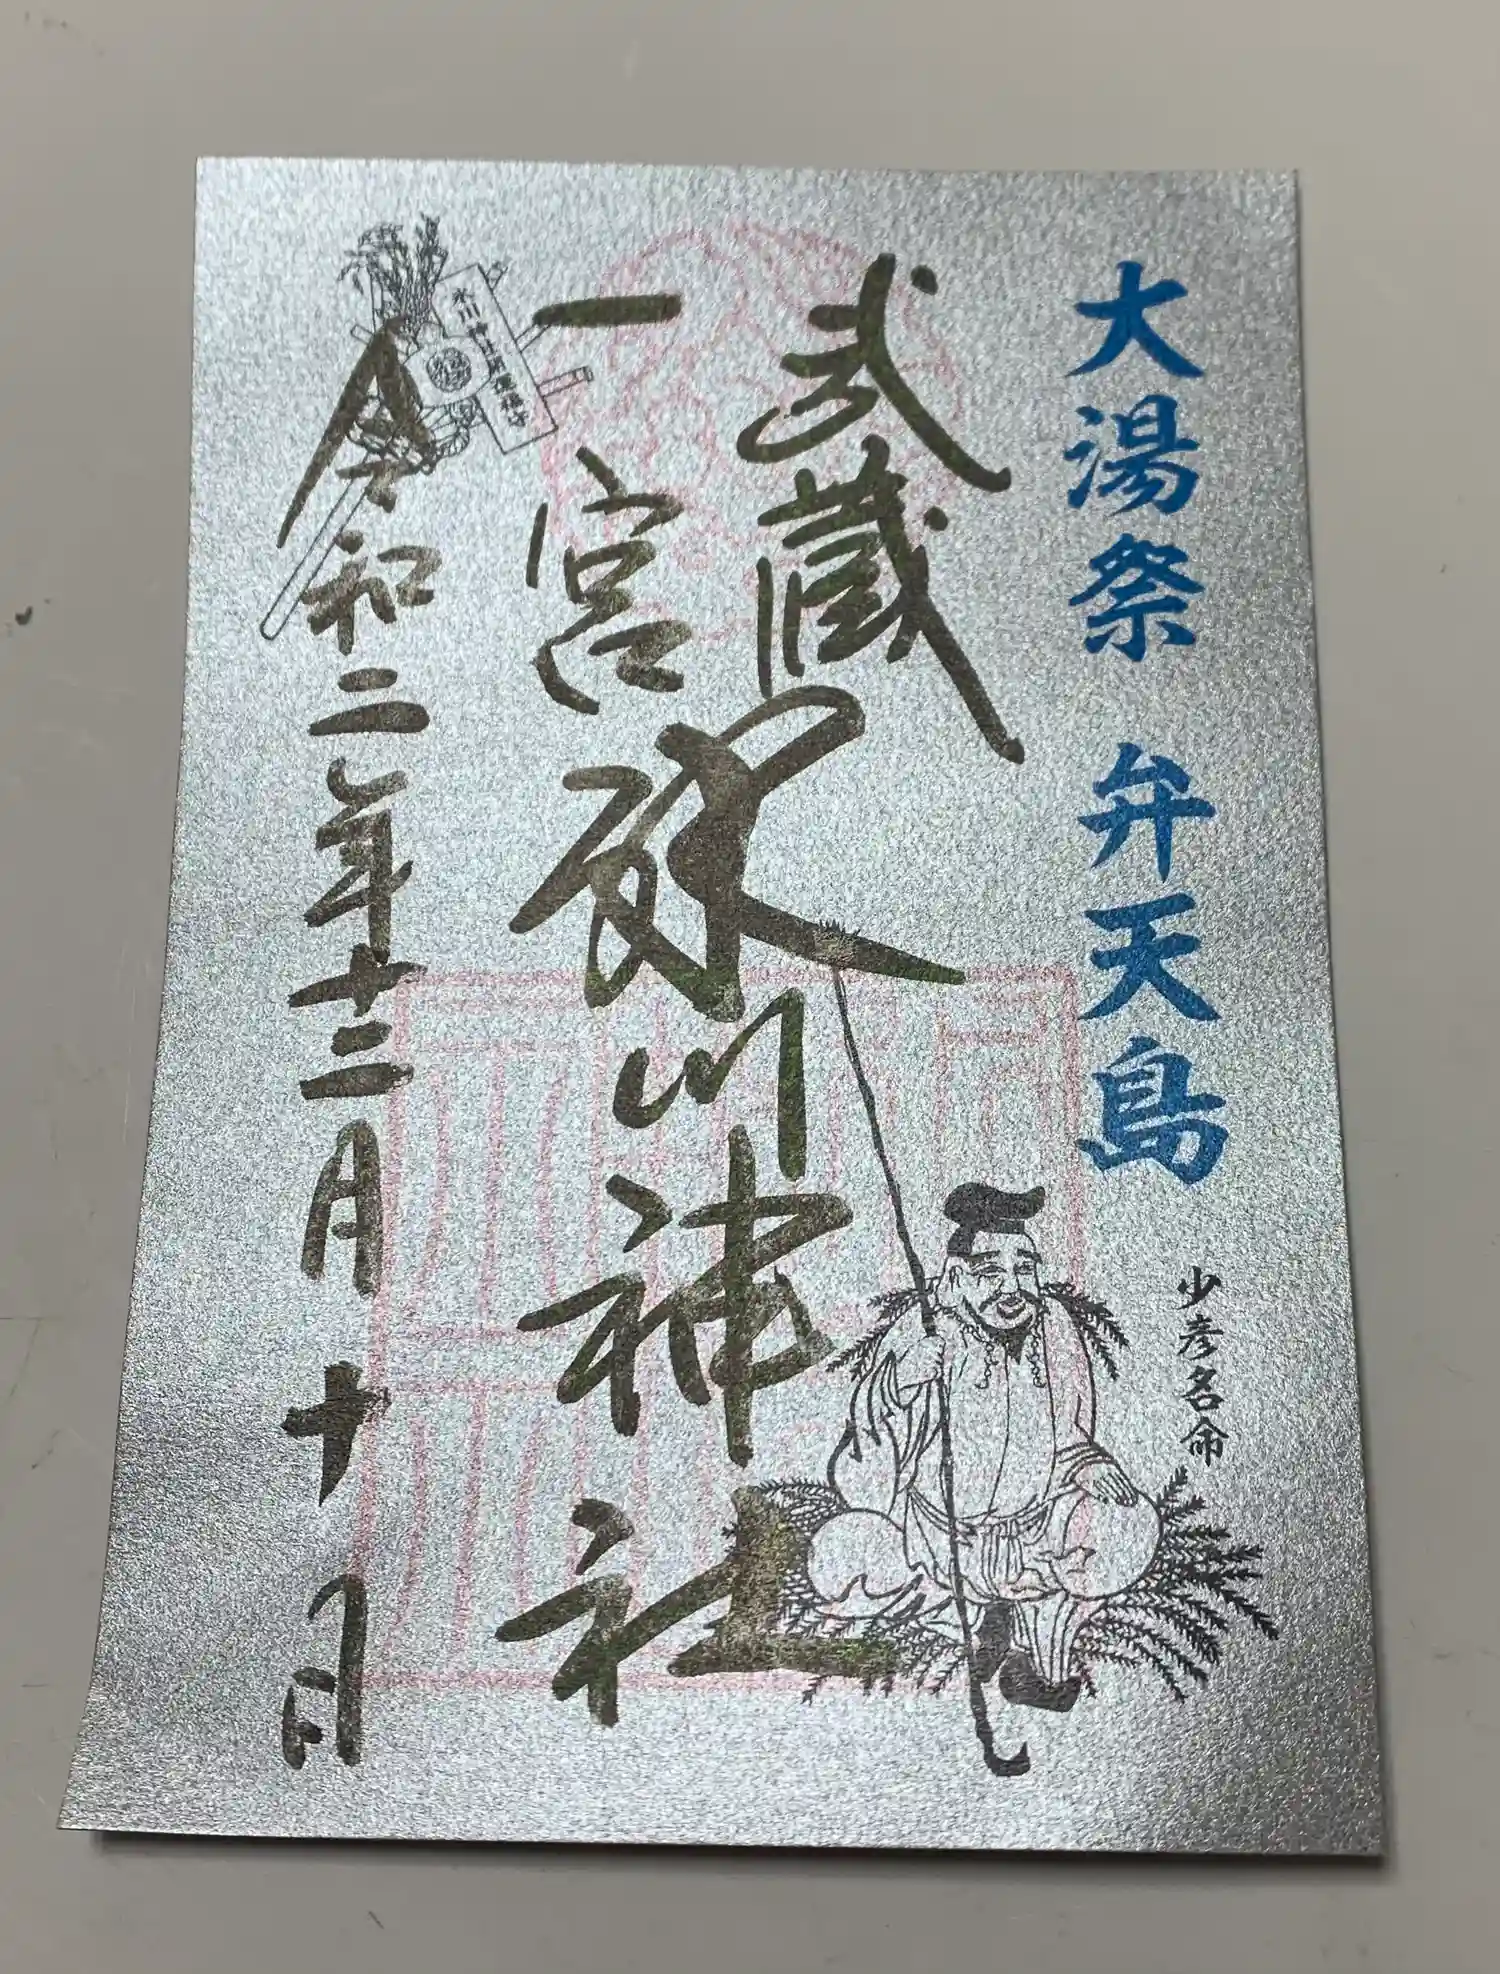 大湯祭 弁天島
少彦名命
武蔵
一宮
氷川神社
令和二年十二月十日